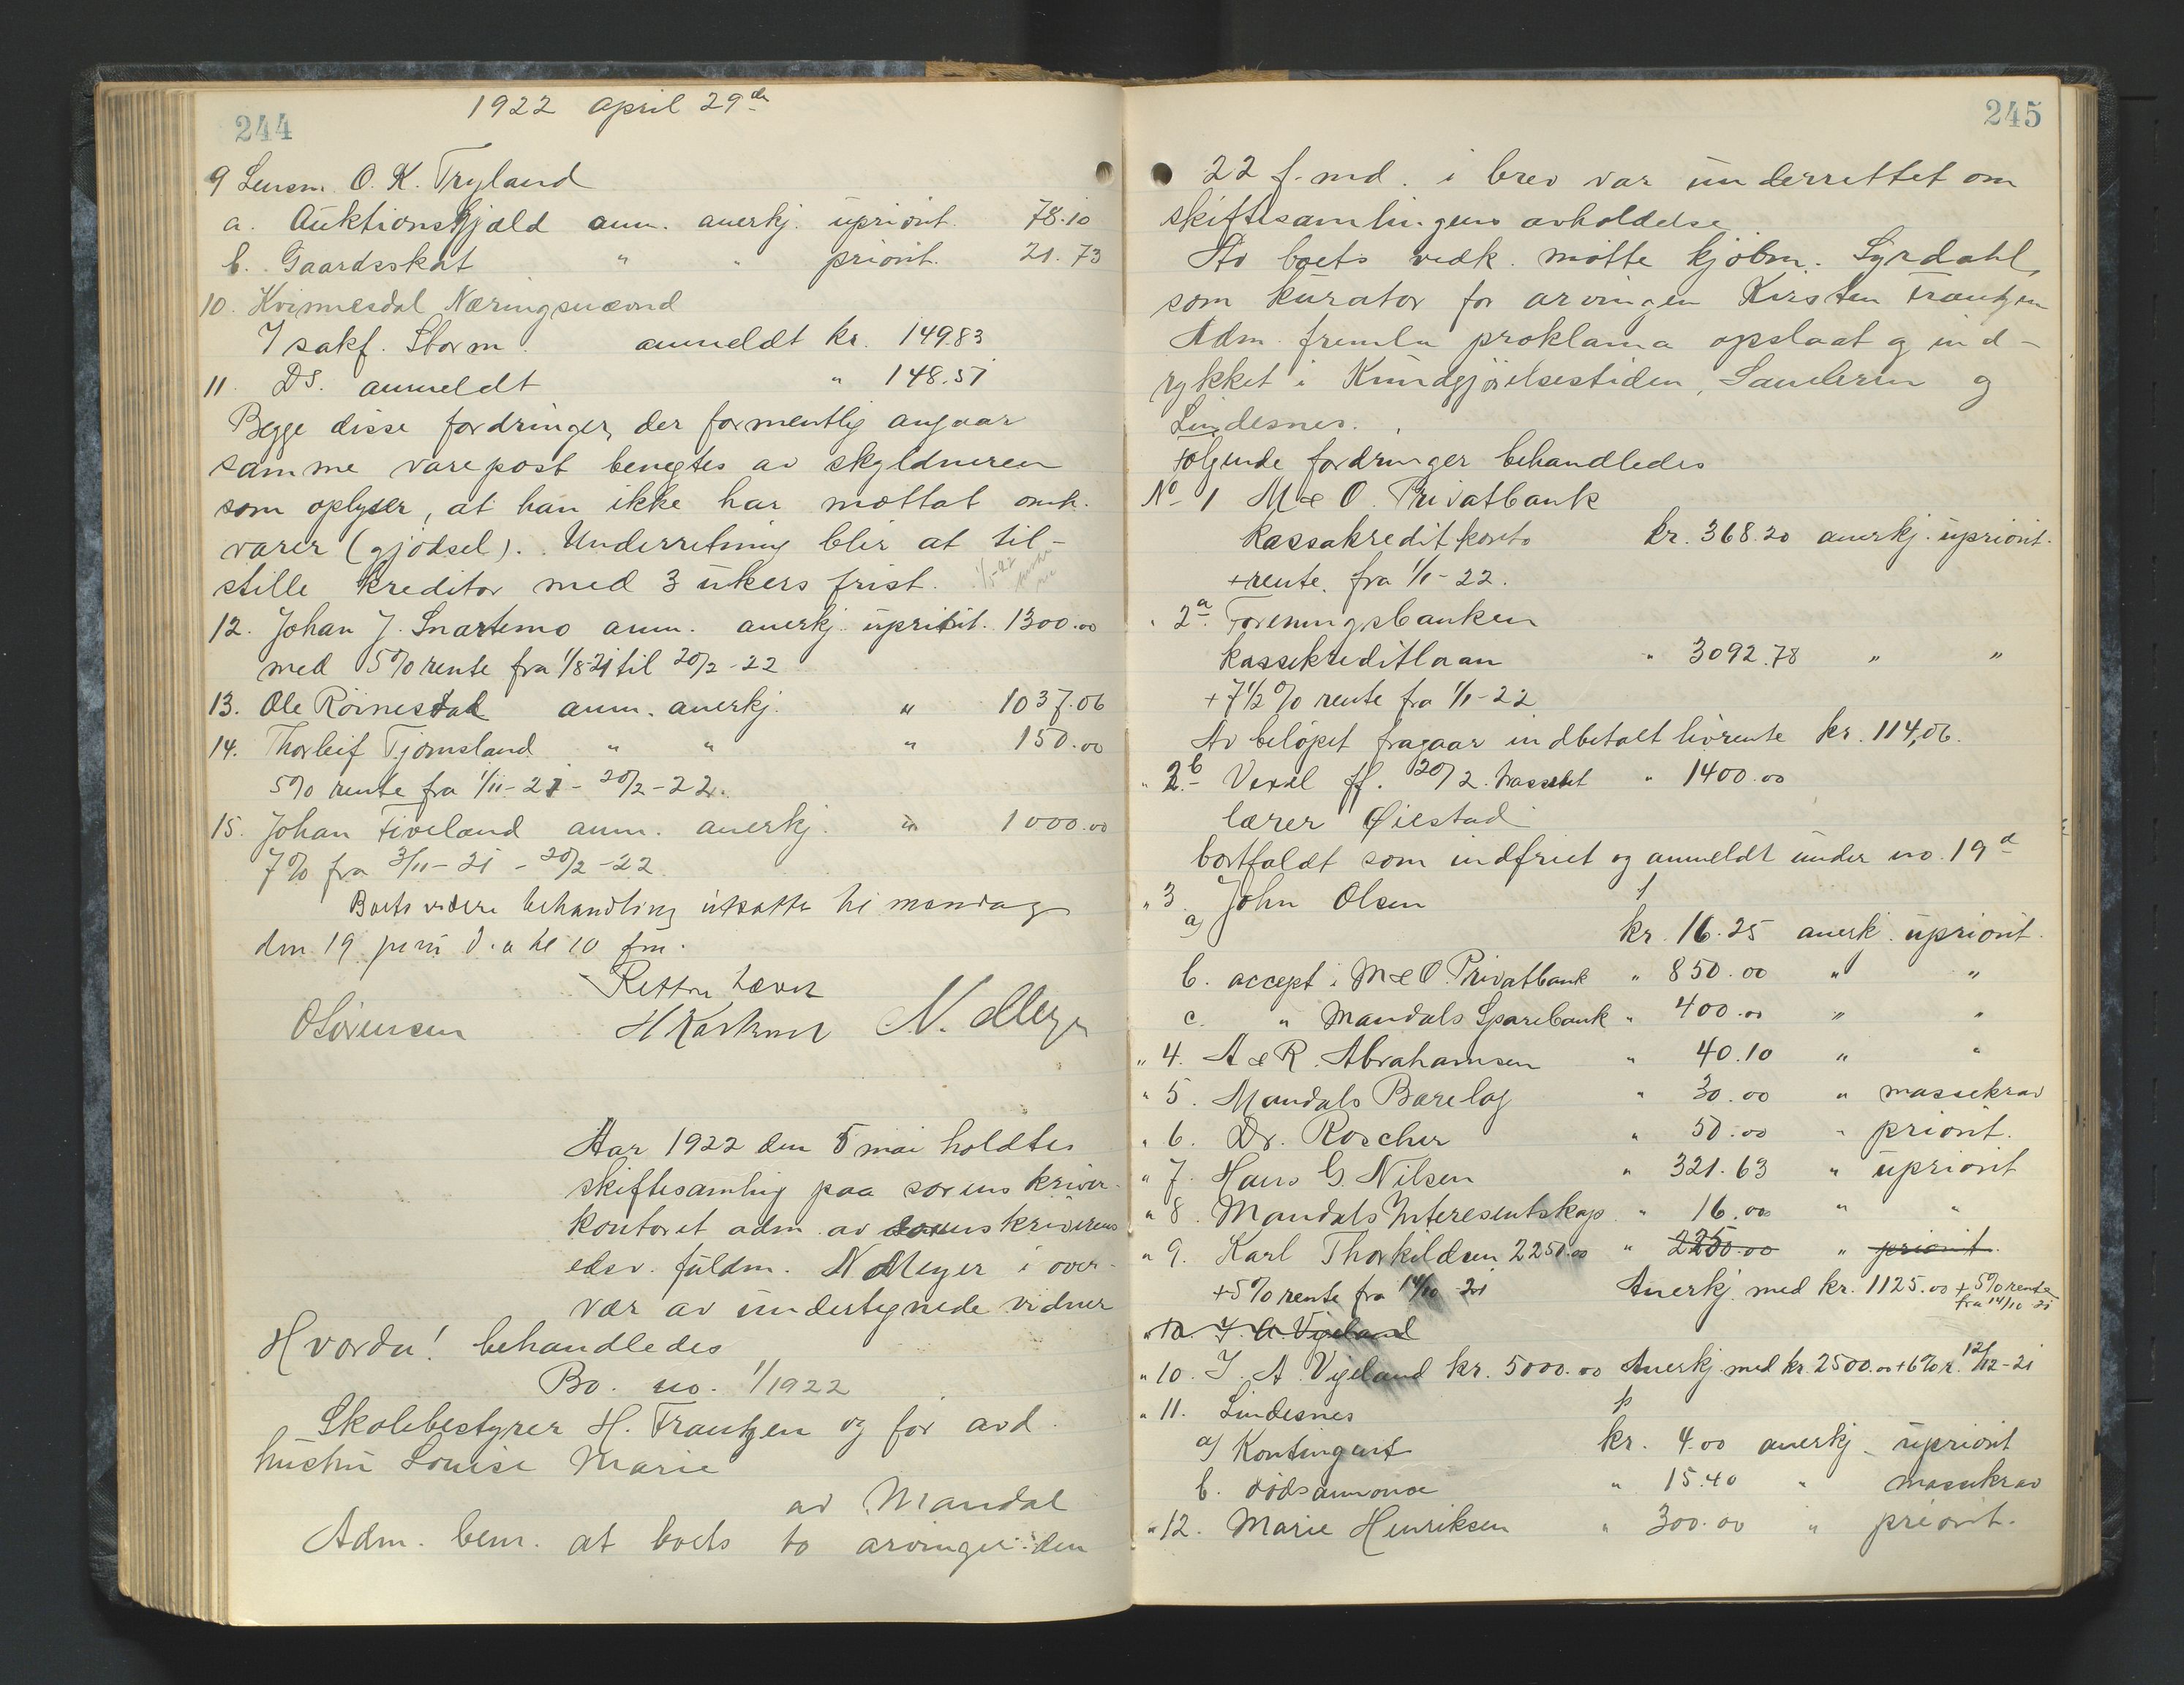 244
1922 april 29de
9 Lensm. O. K. Tryland
a. Auktionsgjæld anm. anerkj. upriorit. 78.10
b. Gaardsskat " " priorit. 21.73
10. Kvinnesdal Næringsnævnd
Isakf. Storm. anmeldt kr. 149.83
11. DS. anmeldt " 148.51
Begge disse fordringer, der formentlig angaar
samme varepost benegtes av skyldneren
som oplyser, at han ikke har mottat omh.
varer (gjødsel). Underretning blir at til-
stille kreditor med 3 ukers frist.
12. Johan J. Snartemo anm. anerkj. upriorit. 1300.00
med 5% rente fra 1/8-21 til 20/2-22
13. Ole Röinestad anm. anerkj. " 1037.06
14. Thorleif Tjomsland " " " 150.00
5% rente fra 1/11-21 - 20/2-22.
15. Johan Fiveland anm. anerkj. " 1000.00
7% fra 3/11-21 - 20/2-22
Boets videre behandling utsattes til mandag
den 19 juni d.a kl 10 fm.
Retten hævet
O Sörensen N. Meyer
Aar 1922 den 5 mai holdtes
skiftesamling paa sorenskriver-
kontoret adm. av sorenskriverens
edsv. fuldm. N Meyer i over-
vær av undertegnede vidner
Hvorda! behandledes
Bo. no. 1/1922
Skolebestyrer H. Frantzen og for avd.
hustru Louise Marie
av Mandal
Adm. bem. at boets to arvinger den
245
22 f. md. i brev var underrettet om
skiftesamlingens avholdelse
Av boets vedk. møtte kjøbm. Syrdahl,
som kurator for arvingen Kirsten Frantzen
Adm. fremla proklama opslaat og ind-
rykket i Kundgjørelsestiden, Samleren og
Lindesnes.
Følgende fordringer behandledes
No 1 M & O. Privatbank
Kassakreditkonto kr. 368.20 anerkj. upriorit.
+ rente fra 1/1-22.
" 2a Foreningsbanken
Kassekreditlaan " 3092.78 " "
+ 7 1/2 % rente fra 1/1-22
Av beløpet fragaar indbetalt livrente kr. 114,06.
" 2b Vexel ff. 20/2. " 1400.00
lærer Øiestad
bortfaldt som indfriet og anmeldt under no. 19d
" 3. John Olsen
a) kr. 16.25 anerk. upriorit.
b. accept i M & O. Privatbank " 850.00 " "
c. " Mandals Sparebank " 400.00 " "
" 4. A & R. Abrahamsen " 40.10 " "
" 5. Mandals Barelag " 30.00 " massekrav
" 6. Dr. Roscher " 50.00 " priorit.
" 7. Hans G. Nilsen " 321.63 " upriorit
" 8. Mandals Interesentskap " 16.00 " "
" 9. Karl Thorkildsen 2250.00 " 2250.00 " priorit.
+ 5% rente fra 14/10 21 Anerkj. med kr. 1125.00 + 5% rente
fra 14/10 21
" 10. J. A. Vigeland
" 10. J. A. Vigeland kr. 5000.00 Anerkj. med kr. 2500.00 + 6% r. 12/12-21
" 11. Lindesnes
a) Kontingent kr. 4.00 anerkj. upriorit
b. dødsannonce " 15.40 " massekrav
" 12. Marie Henriksen " 300.00 " priorit.